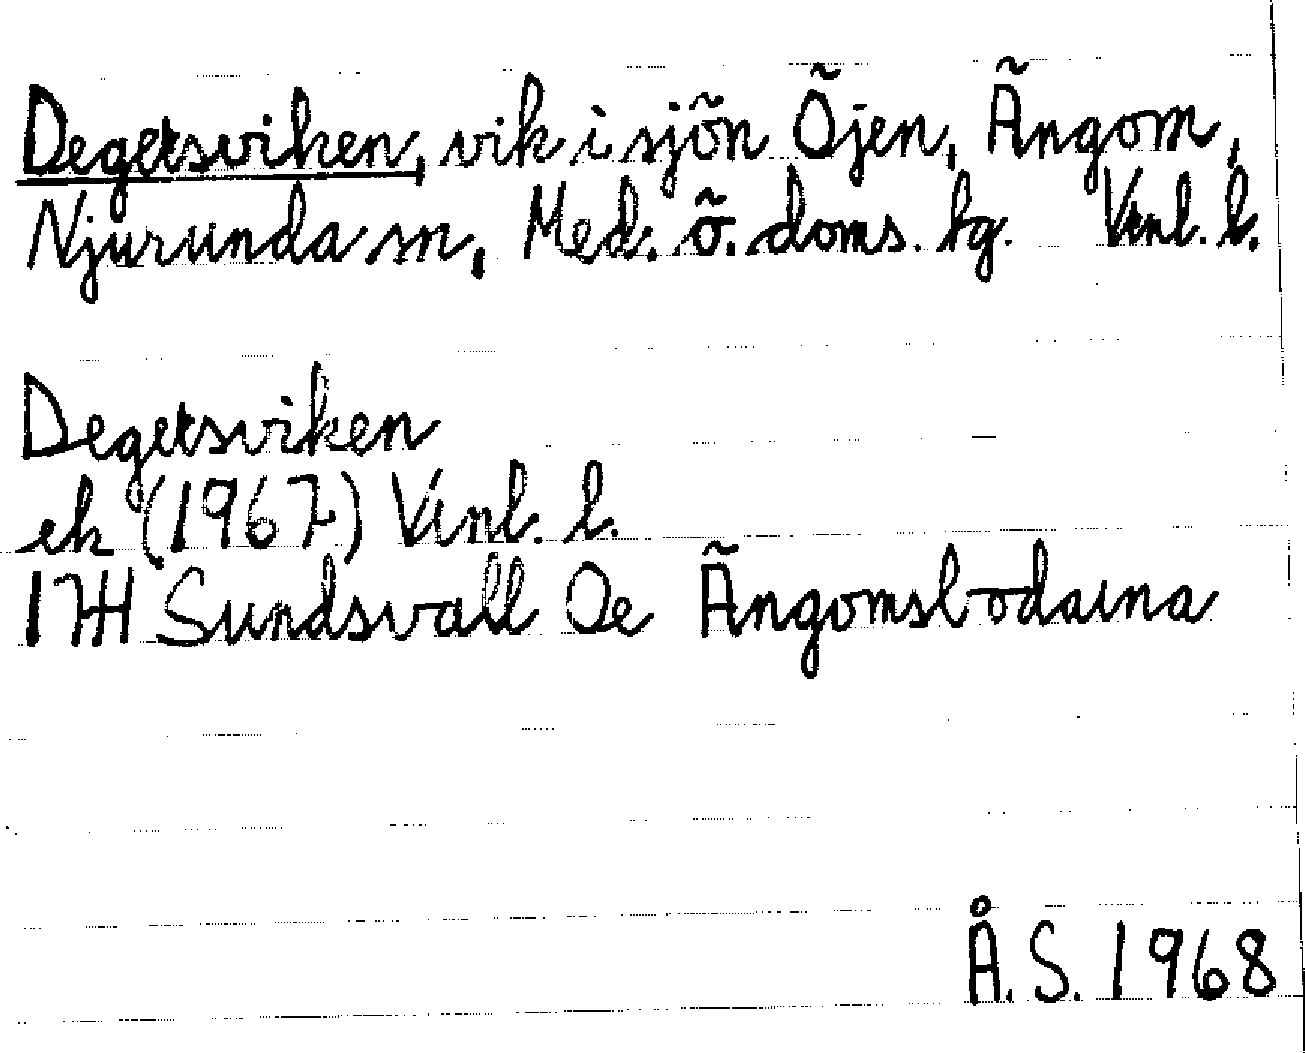 Degersviken, vik i sjön Öjen, Ängom,
Njurunda sn, Med. ö. doms. hg. Vnl. l.
Degersviken
ek (1967) Vnl. l.
17H Sundsvall Oe Ängomsbodarna
Å.S. 1968